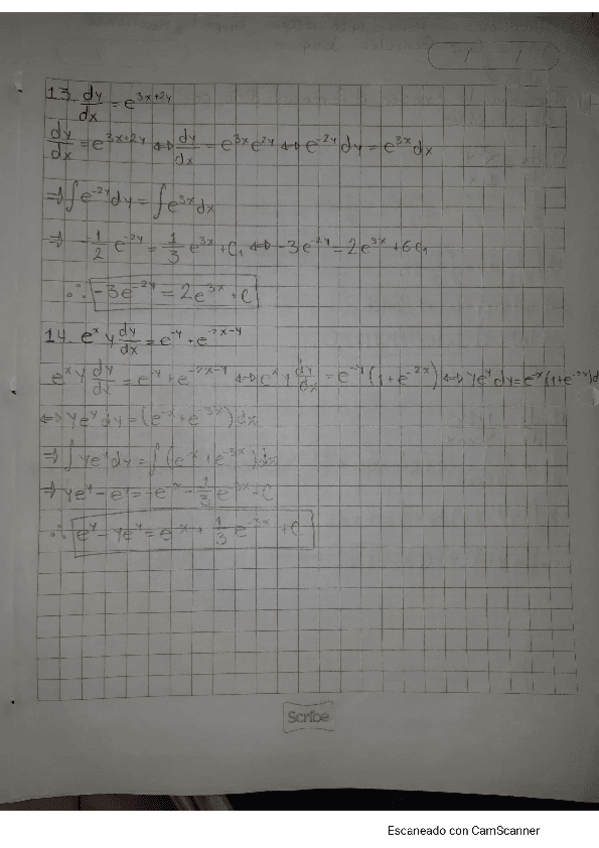 13. dy/dx = e^{3x+2y}
dy/dx = e^{3x+2y} ⇔ dy/dx = e^{3x}e^{2y} ⇔ e^{-2y}dy = e^{3x}dx
⇒ ∫e^{-2y}dy = ∫e^{3x}dx
⇒ -1/2 e^{-2y} = 1/3 e^{3x} + C₁ ⇔ -3e^{-2y} = 2e^{3x} + 6C₁
∴ -3e^{-2y} = 2e^{3x} + C
14. e^x y dy/dx = e^{-y} + e^{-2x-y}
e^x y dy/dx = e^{-y} + e^{-2x-y} ⇔ e^x y dy/dx = e^{-y}(1+e^{-2x}) ⇔ ye^y dy = e^{-x}(1+e^{-2x})d
⇔ ye^y dy = (e^{-x}+e^{-3x})dx
⇒ ∫ye^y dy = ∫(e^{-x}+e^{-3x})dx
⇒ ye^y - e^y = -e^{-x} - 1/3 e^{-3x} - C
∴ e^y - ye^y = e^{-x} + 1/3 e^{-3x} + C
Scribe
Escaneado con CamScanner